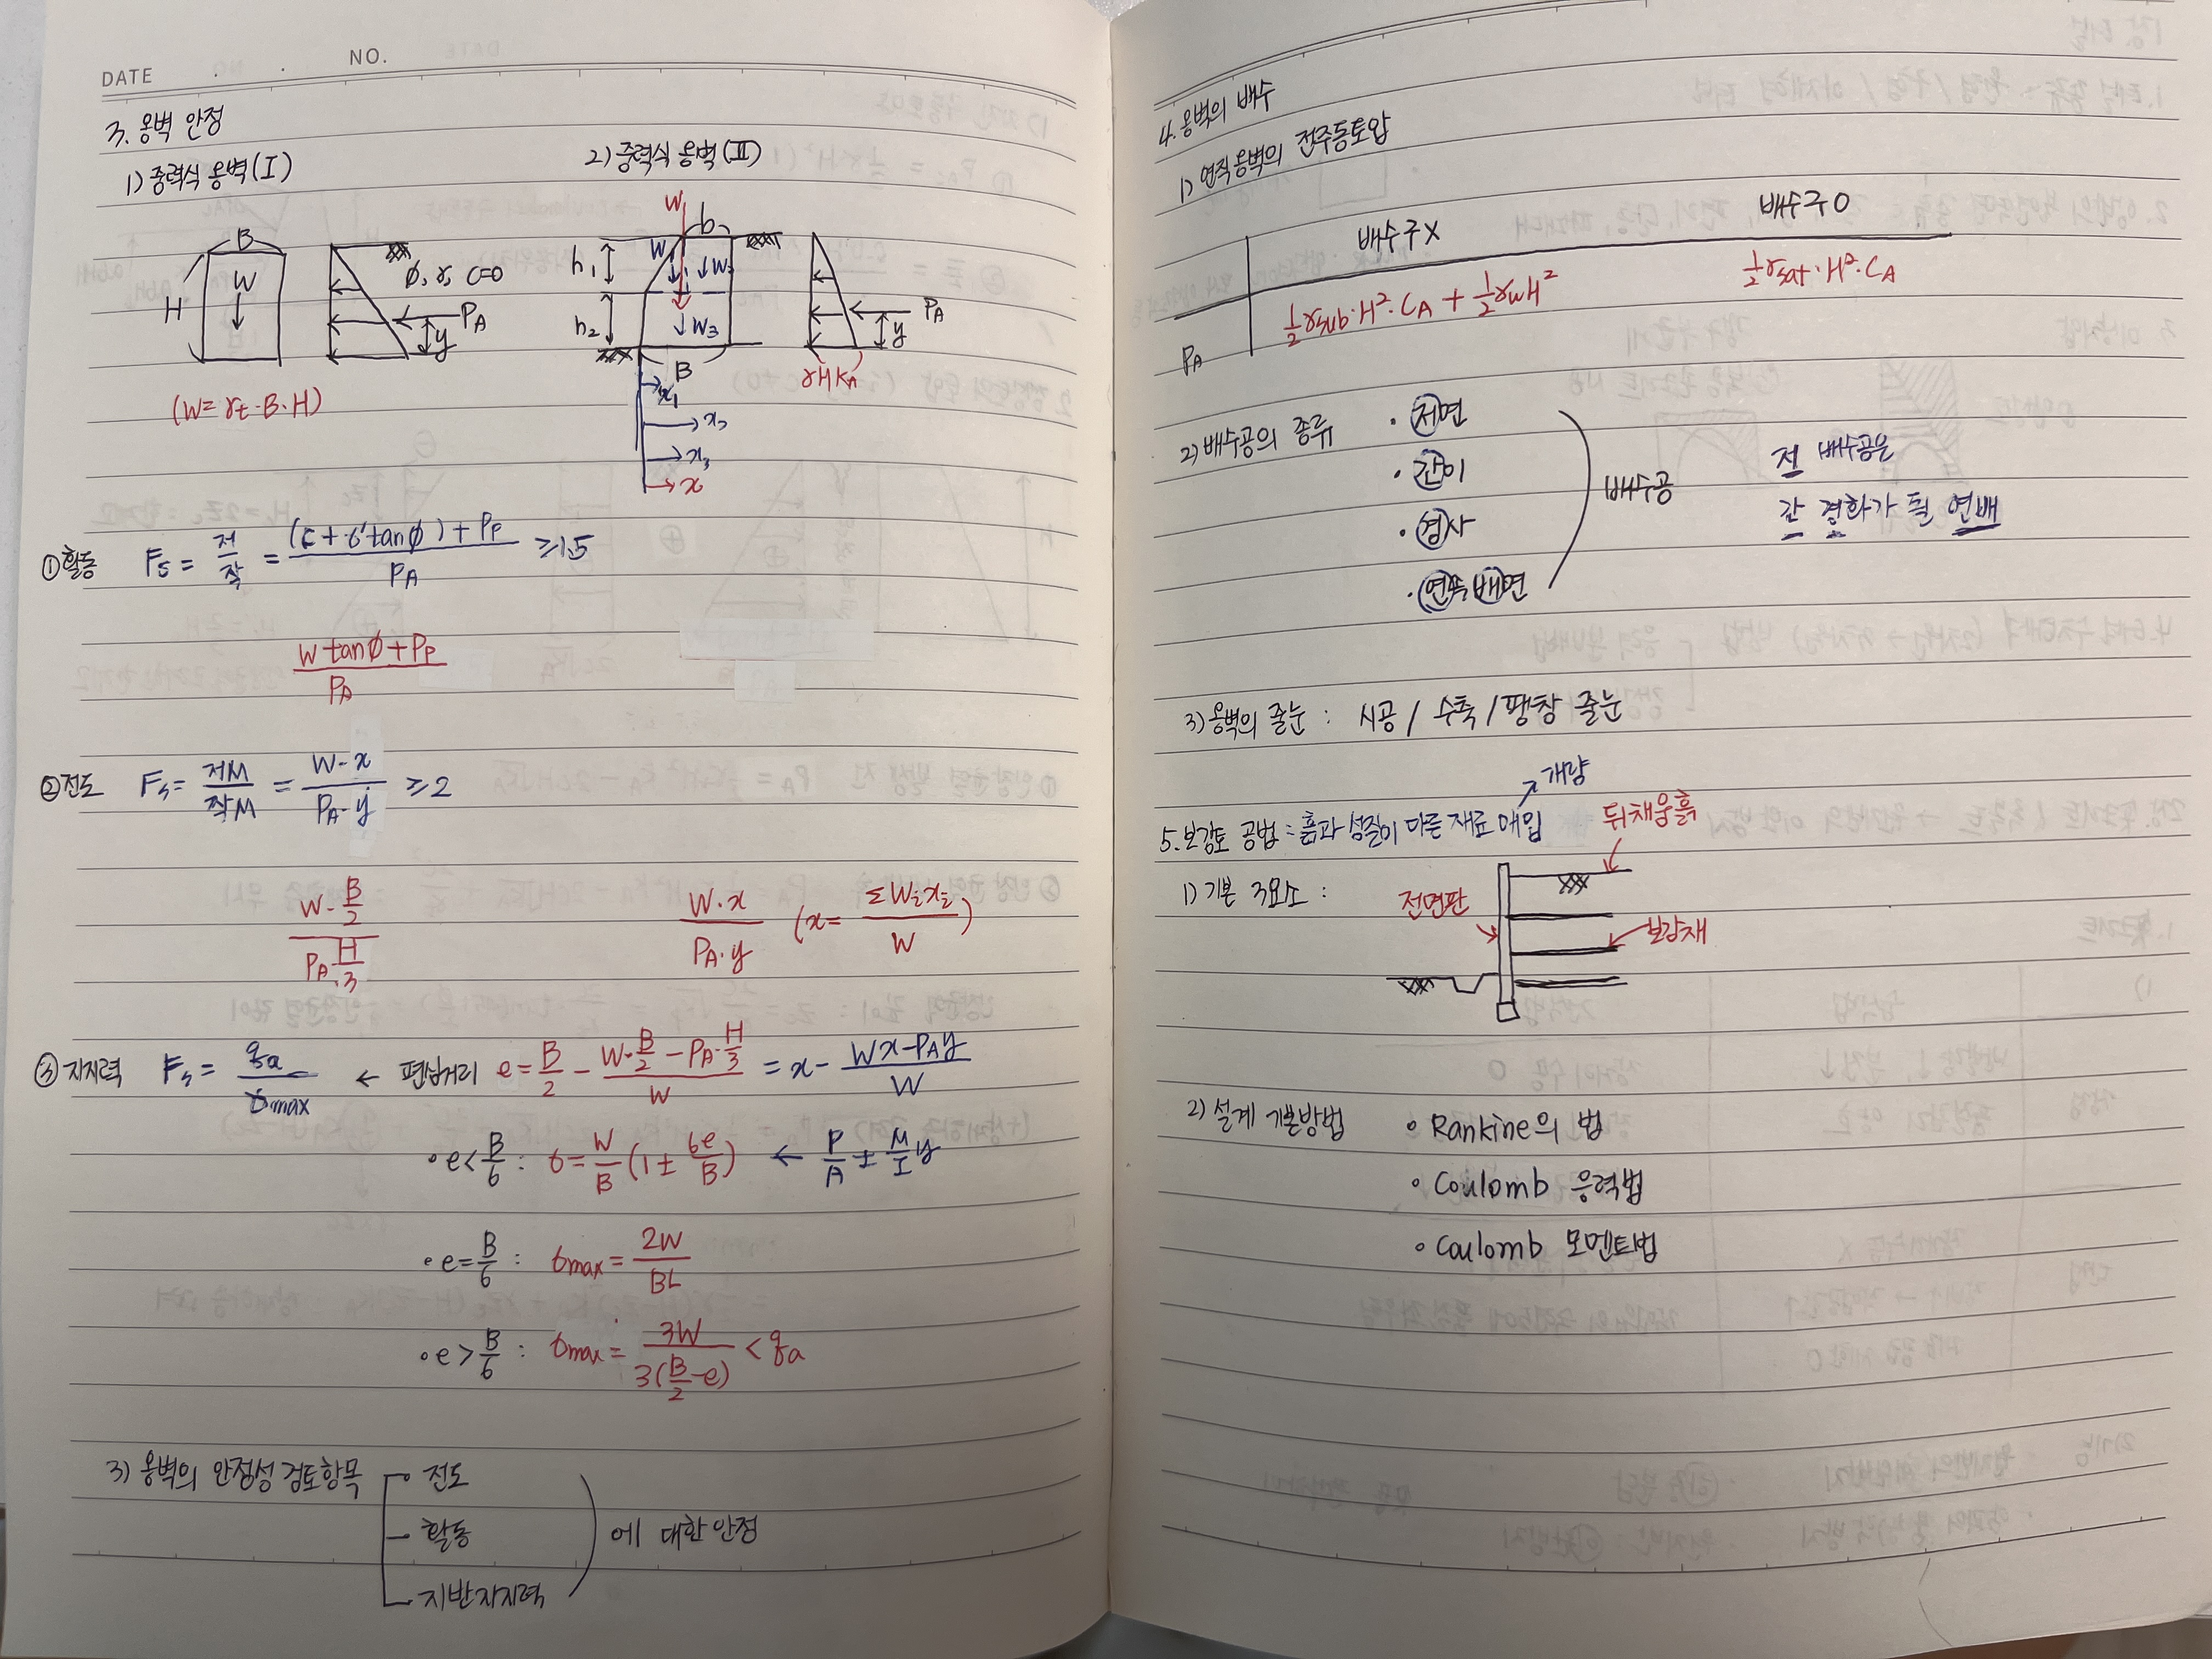 DATE . . NO.
3. 옹벽 안정
1) 중력식 옹벽(I)
B
W
H
ϕ, γ, C=0
PA
y
(W= γt·B·H)
2) 중력식 옹벽(II)
W
b
h1
h2
W1
W2
W3
B
PA
y
γHKA
x1
x2
x3
x
① 활동 Fs = 저/작 = (C + σ'tanϕ) + PP / PA ≥ 1.5
W tanϕ + PP / PA
② 전도 Fs = 저M/작M = W·x / PA·y ≥ 2
W·B/2 / PA·H/3
W·x / PA·y (x= ΣWixi / W)
③ 지지력 Fs = qa / σmax ← 편심거리 e = B/2 - (W·B/2 - PA·H/3) / W = x - (Wx - PAy) / W
• e < B/6 : σ = W/B (1 ± 6e/B) ← P/A ± M/I y
• e = B/6 : σmax = 2W / BL
• e > B/6 : σmax = 3W / 3(B/2 - e) < qa
3) 옹벽의 안정성 검토항목
전도
활동
지반지지력
에 대한 안정
4. 옹벽의 배수
1) 연직옹벽의 전주동토압
배수구X 배수구O
PA ½γsub·H²·CA + ½γwH² ½γsat·H²·CA
2) 배수공의 종류
• 저면
• 간이
• 경사
• 연속배면
배수공
저 배수공은
간 경화가 될 연배
3) 옹벽의 줄눈 : 시공 / 수축 / 팽창 줄눈
개량
5. 보강토 공법 : 흙과 성질이 다른 재료 매입
1) 기본 3요소 :
뒤채움흙
전면판
보강재
2) 설계 기본방법
• Rankine의 법
• Coulomb 응력법
• Coulomb 모멘트법